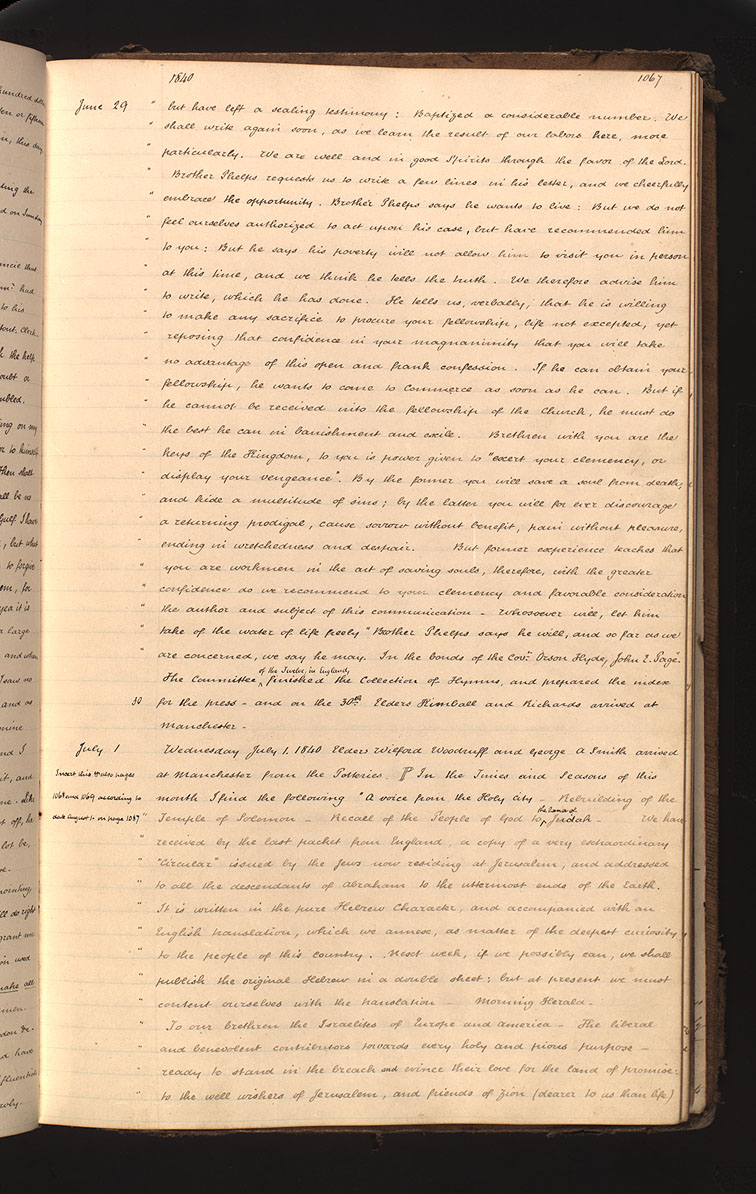 1840 1067
June 29 " but have left a sealing testimony: Baptized a considerable number. We
" shall write again soon, as we learn the result of our labors here, more
" particularly. We are well and in good Spirits through the favor of the Lord.
" Brother Phelps requests us to write a few lines in his letter, and we cheerfully
" embrace the opportunity. Brother Phelps says he wants to live: But we do not
" feel ourselves authorized to act upon his case, but have recommended him
" to you: But he says his poverty will not allow him to visit you in person
" at this time, and we think he tells the truth. We therefore advise him
" to write, which he has done. He tells us, verbally, that he is willing
" to make any sacrifice to procure your fellowship, life not excepted, yet
" reposing that confidence in your magnanimity that you will take
" no advantage of this open and frank confession. If he can obtain your
" fellowship, he wants to come to Commerce as soon as he can. But if
" he cannot be received into the fellowship of the Church, he must do
" the best he can in banishment and exile. Brethren with you are the
" keys of the Kingdom, to you is power given to "exert your clemency, or
" display your vengeance". By the former you will save a soul from death,
" and hide a multitude of sins; by the latter you will for ever discourage
" a returning prodigal, cause sorrow without benefit, pain without pleasure,
" ending in wretchedness and despair. But former experience teaches that
" you are workmen in the art of saving souls, therefore, with the greater
" confidence do we recommend to your clemency and favorable consideration
" the author and subject of this communication - Whosoever will, let him
" take of the water of life freely" Brother Phelps says he will, and so far as we
" are concerned, we say he may. In the bonds of the Covt. Orson Hyde, John E. Page".
of the Twelve, in England,
The Committee ^ finished the Collection of Hymns, and prepared the index
30 for the press - and on the 30th Elders Kimball and Richards arrived at
Manchester -
July 1 Wednesday July 1. 1840 Elders Wilford Woodruff and George A Smith arrived
Insert this & also pages at Manchester from the Potteries. ¶ In the Times and Seasons of this
1068 and 1069 according to month I find the following "A voice from the Holy City - Rebuilding of the
the land of
date August 1. on page 1087 " Temple of Solomon - Recall of the People of God to ^ Judah - We have
" received by the last packet from England, a copy of a very extraordinary
" "Circular" issued by the Jews now residing at Jerusalem, and addressed
" to all the descendants of Abraham to the uttermost ends of the Earth.
" It is written in the pure Hebrew Character, and accompanied with an
" English translation, which we annex, as matter of the deepest curiosity
" to the people of this country. Next week, if we possibly can, we shall
" publish the original Hebrew in a double sheet; but at present we must
" content ourselves with the translation - Morning Herald -
" To our brethren the Israelites of Europe and America - The liberal
" and benevolent contributors towards every holy and pious purpose -
" ready to stand in the breach and evince their love for the land of promise:
" to the well wishers of Jerusalem, and friends of Zion (dearer to us than life)